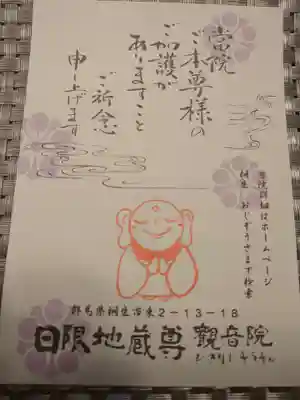 当院
ご本尊様の
ご加護が
ありますこと
ご祈念
申し上げます
当院詳細はホームページ
桐生 おじぞうさまで検索
群馬県桐生市東2-13-18
日限地蔵尊 観音院